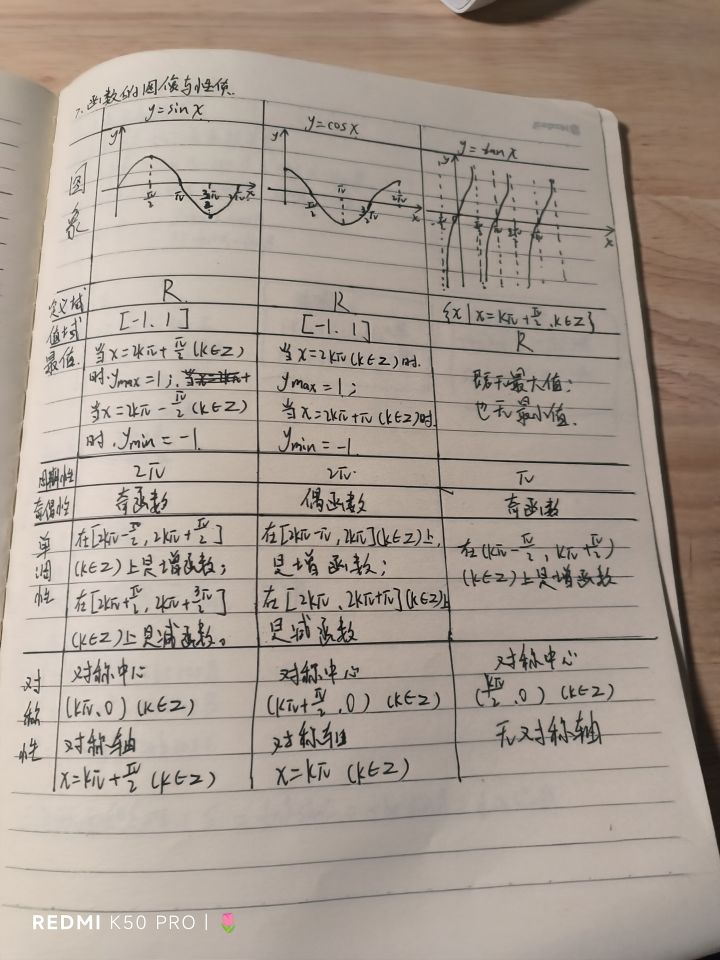 7.函数的图像与性质.
y=sinx
y=cosx
y=tanx
图象
y
π/2
π
3π/2
2π
x
y
π/2
π
3π/2
2π
x
y
-π/2
0
π/2
π
3π/2
2π
x
定义域
R
R
{x|x=kπ+π/2,k∈Z}
值域
[-1.1]
[-1.1]
R
最值.
当x=2kπ+π/2(k∈Z)
时.ymax=1;
当x=2kπ-π/2(k∈Z)
时.ymin=-1.
当x=2kπ(k∈Z)时.
ymax=1;
当x=2kπ+π(k∈Z)时.
ymin=-1.
既无最大值;
也无最小值.
周期性
2π
2π
π
奇偶性
奇函数
偶函数
奇函数
单调性
在[2kπ-π/2,2kπ+π/2]
(k∈Z)上是增函数;
在[2kπ+π/2,2kπ+3π/2]
(k∈Z)上是减函数。
在[2kπ-π,2kπ](k∈Z)上,
是增函数;
在[2kπ、2kπ+π](k∈Z)上
是减函数
在(kπ-π/2,kπ+π/2)
(k∈Z)上是增函数
对称性
对称中心
(kπ,0)(k∈Z)
对称轴
x=kπ+π/2(k∈Z)
对称中心
(kπ+π/2,0)(k∈Z)
对称轴
x=kπ(k∈Z)
对称中心
(kπ/2,0)(k∈Z)
无对称轴
REDMI K50 PRO |